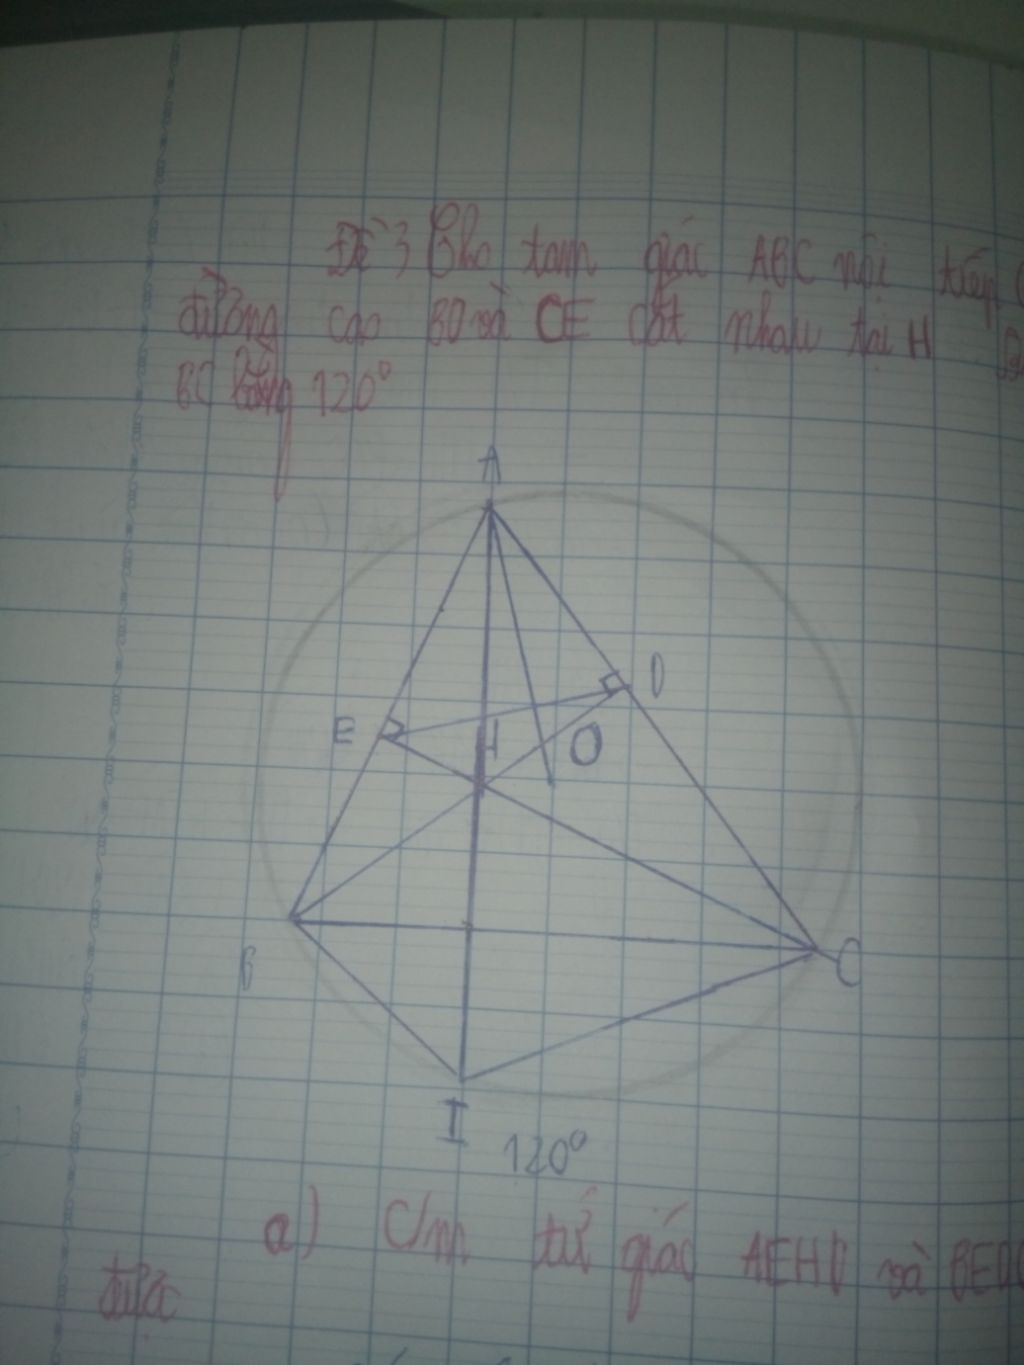 Đề 3 Cho tam giác ABC nội tiếp
đường cao BD và CE cắt nhau tại H
BC bằng 120°
A
E
D
H
O
B
C
I
120°
a) C/m tứ giác AEHD và BEDC
được